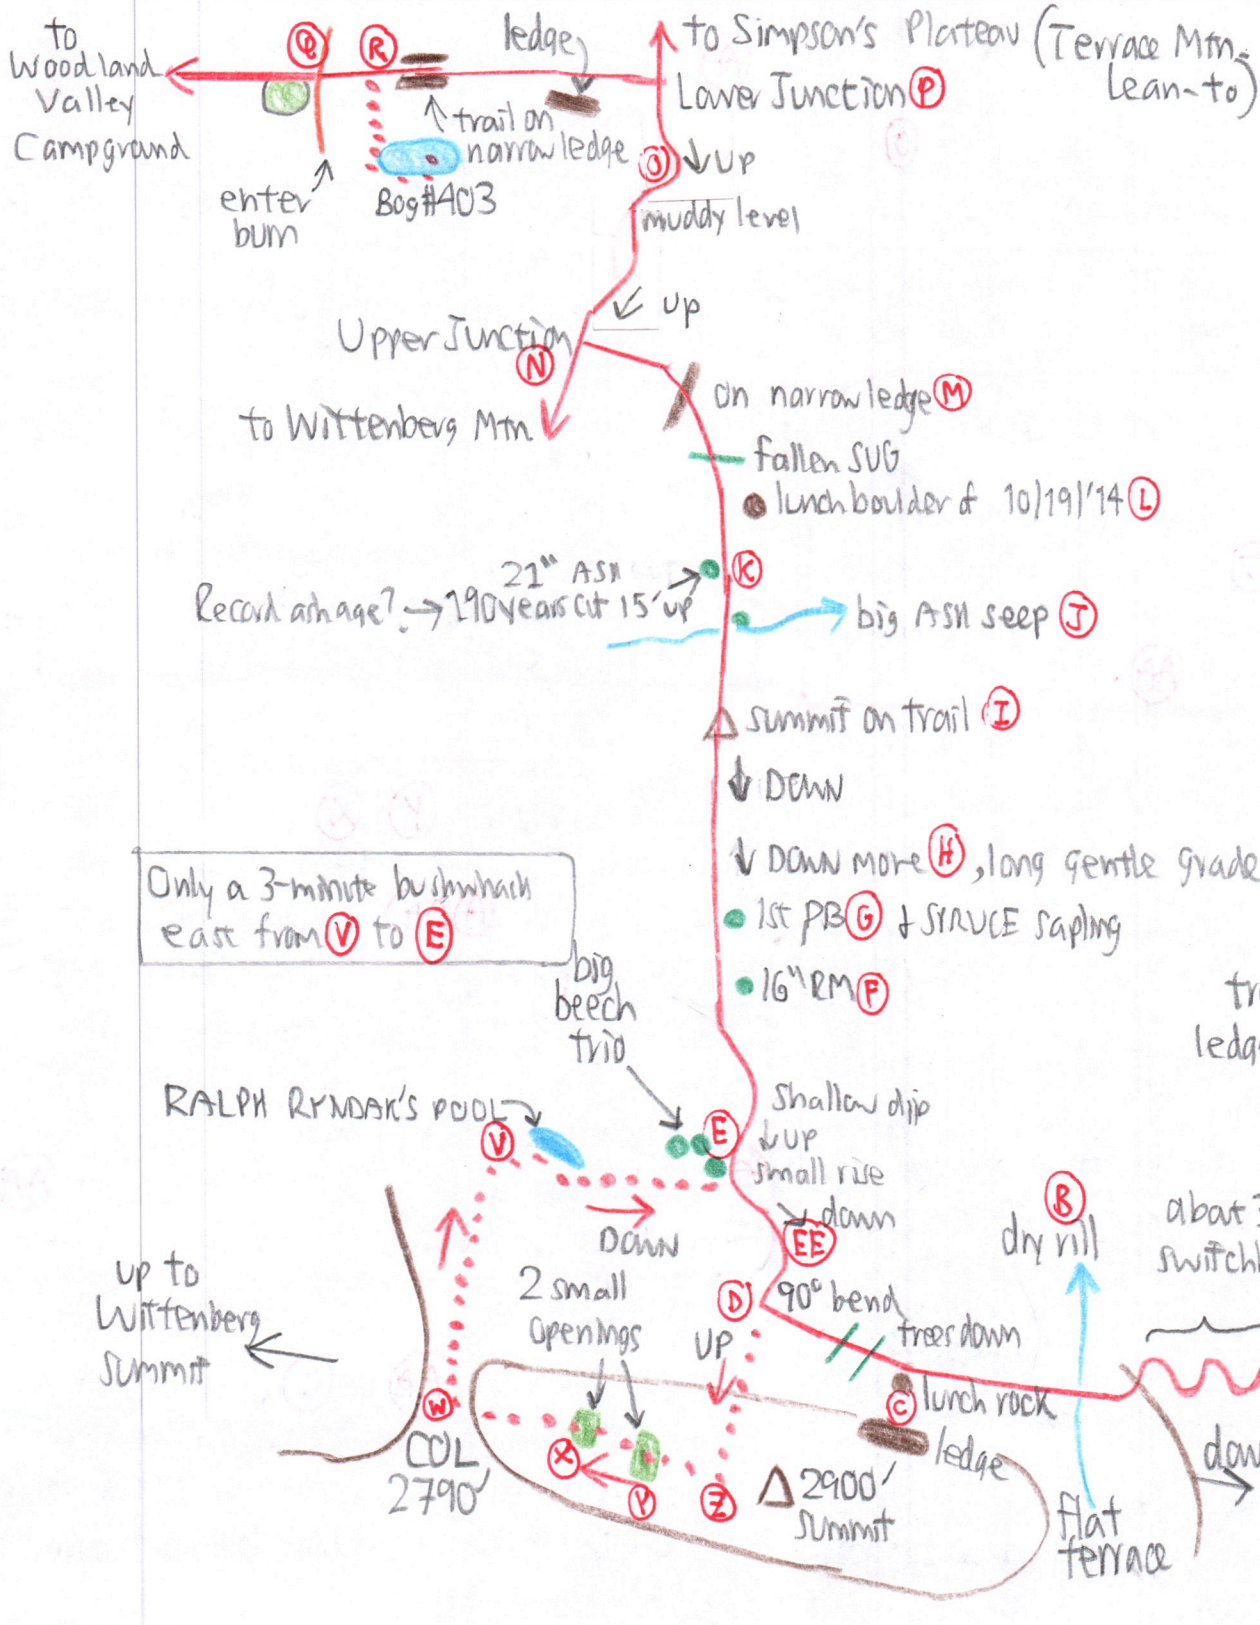 to
Woodland
Valley
Campground
Q
R
ledge
to Simpson's Plateau (Terrace Mtn.
Lean-to)
Lower Junction P
trail on
narrow ledge
O
UP
enter
burn
Bog #403
muddy level
UP
Upper Junction
N
to Wittenberg Mtn.
on narrow ledge M
fallen SUG
lunch boulder of 10/19/'14 L
21" ASH
K
Record ash age? → 190 years cut 15' up
big ASH seep J
summit on trail I
DOWN
DOWN more H, long gentle grade
Only a 3-minute bushwhack
east from V to E
1st PB G + SPRUCE sapling
16" RM F
big
beech
trio
tr
ledg
RALPH RYNDAK'S POOL
V
E
shallow dip
UP
small rise
down
EE
DOWN
B
dry rill
about 3
switchb
up to
Wittenberg
summit
2 small
openings
D
90° bend
UP
trees down
W
COL
2790'
C lunch rock
ledge
X
Y
Z
2900'
summit
flat
terrace
dow